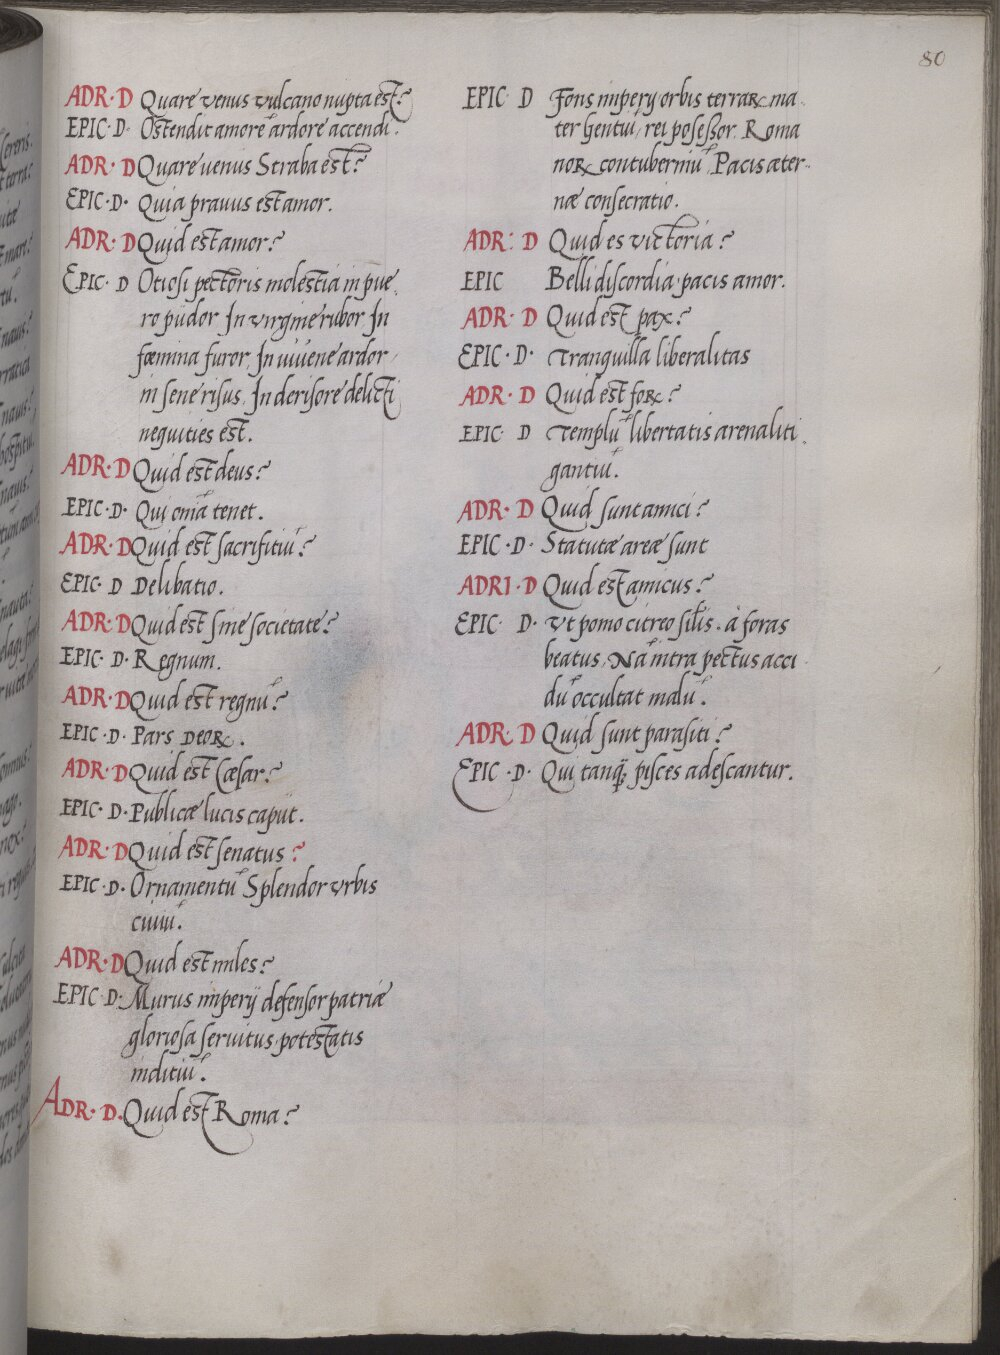 80
ADR · D Quare venus vulcano nupta est?
EPIC · D · Ostendit amorē ardore accendi.
ADR · D Quare uenus Straba est?
EPIC · D · Quia prauus est amor.
ADR · D Quid est amor?
EPIC · D Otiosi pectoris molestia in pue
ro pudor In virgine rubor In
fœmina furor In iuuene ardor
in sene risus In derisore delicti
nequities est.
ADR · D Quid est deus?
EPIC · D · Qui oīa tenet.
ADR · D Quid est sacrifitiū?
EPIC · D Delibatio.
ADR · D Quid est sine societate?
EPIC · D · Regnum.
ADR · D Quid est regnū?
EPIC · D · Pars deoꝝ.
ADR · D Quid est Cæsar?
EPIC · D · Publicæ lucis caput.
ADR · D Quid est senatus?
EPIC · D · Ornamentū Splendor vrbis
ciuiū.
ADR · D Quid est miles?
EPIC · D · Murus imperij defensor patriæ
gloriosa seruitus potestatis
inditiū.
ADR · D · Quid est Roma?
EPIC · D Fons imperij orbis terraꝝ ma
ter gentiū, rei posessor Roma
noꝝ contuberniū Pacis æter
næ consecratio.
ADR · D Quid es victoria?
EPIC Belli discordia pacis amor.
ADR · D Quid est pax?
EPIC · D · Tranquilla liberalitas
ADR · D Quid est foꝝ?
EPIC · D Templū libertatis arena liti
gantiū.
ADR · D Quid sunt amici?
EPIC · D · Statutæ areæ sunt
ADRI · D Quid est amicus?
EPIC · D · Vt pomo citreo silis. à foras
beatus, Nā intra pectus acci
dū occultat malū.
ADR · D Quid sunt parasiti?
EPIC · D · Qui tanq̃ pisces adescantur.